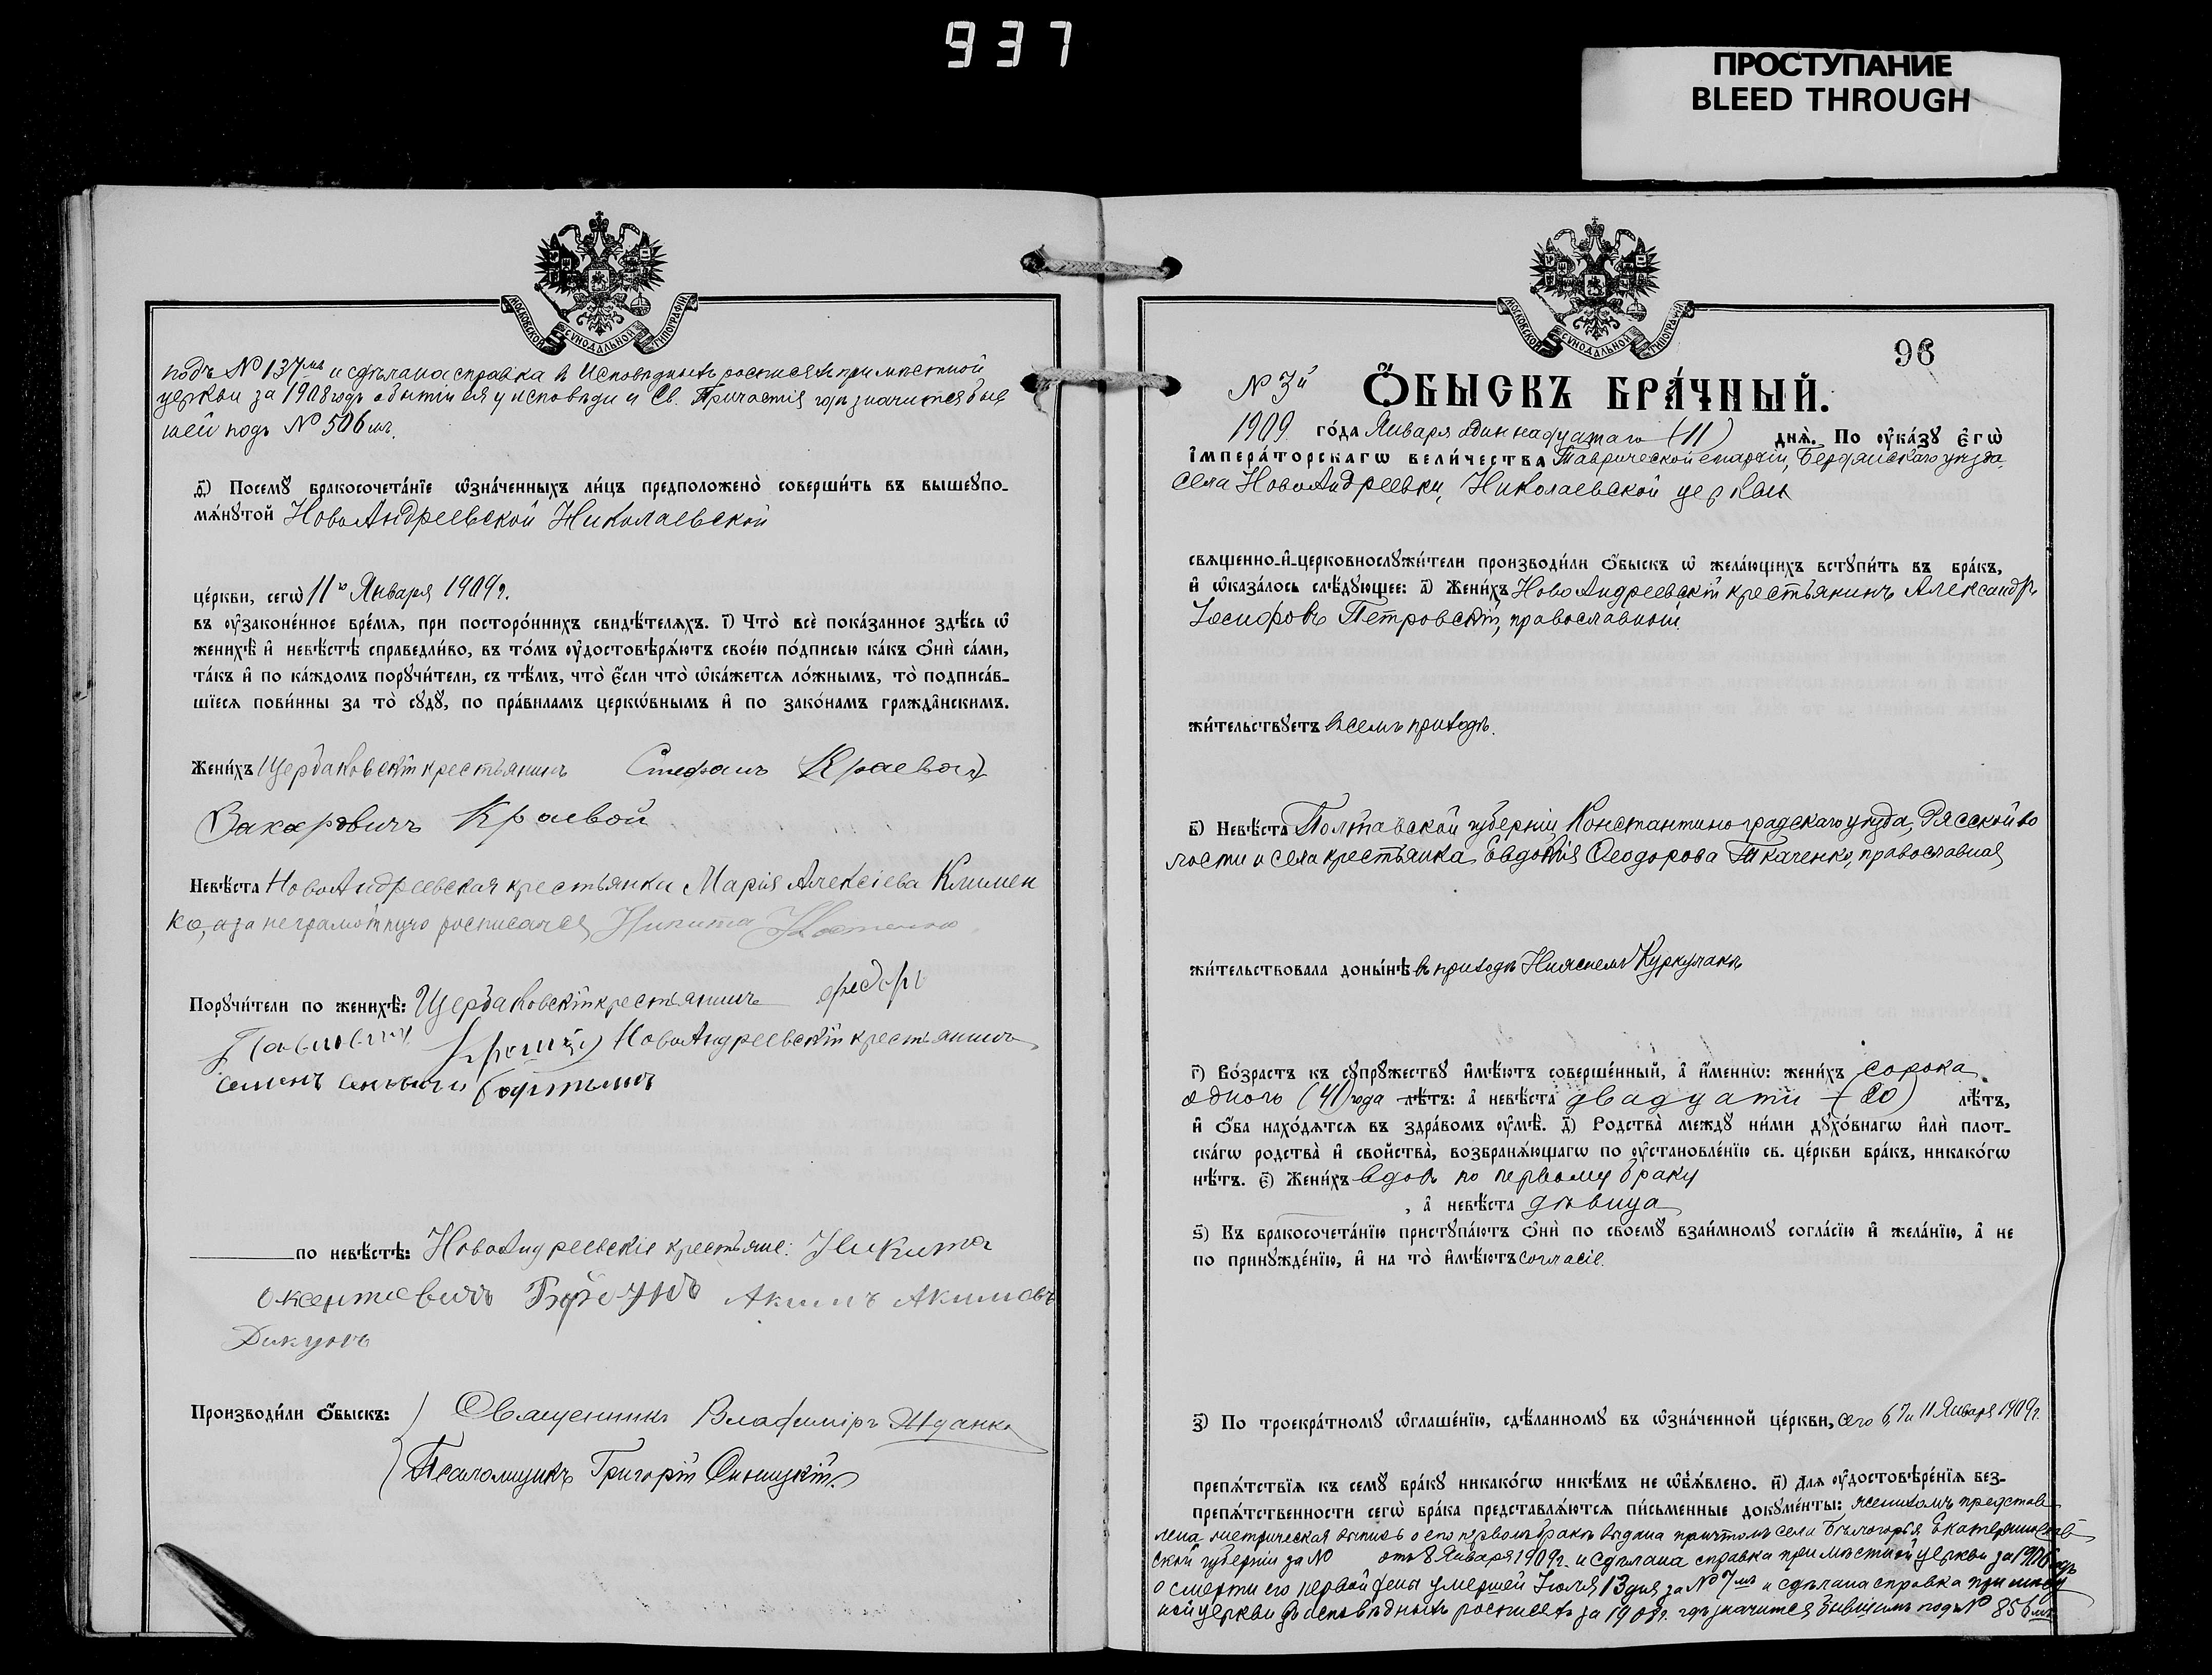 937
ПРОСТУПАНИЕ
BLEED THROUGH
МОСКОВСКОЙ СѴНОДАЛЬНОЙ ТИПОГРАФІИ
подъ № 137мъ и сдѣлана справка въ исповѣдныхъ росписяхъ при мѣстной
церкви за 1908 годъ о бытіи ея у исповѣди и Св. Причастія гдѣ значится быв
шей подъ № 506мъ.
Ѳ҃) Посемꙋ̀ бракосочета́нїе ѡ҆зна́ченныхъ ли́цъ предположено̀ соверши́ть въ вышеꙋпо-
мѧ́нꙋтой НовоАндреевской Николаевской
це́ркви, сегѡ̀ 11го Января 1909 г.
въ ᲂу҆законе́нное вре́мѧ, при посторо́ннихъ свидѣ́телѧхъ. І҃) Что̀ всѐ пока́занное здѣ́сь ѡ҆
женихѣ̀ и҆ невѣ́стѣ справедли́во, въ то́мъ ᲂу҆достовѣрѧ́ютъ свое́ю по́дписью ка́къ ѻ҆нѝ са́ми,
та́къ и҆ по ка́ждомъ порꙋчи́тели, съ тѣ́мъ, что̀ є҆́сли что̀ ѡ҆ка́жетсѧ ло́жнымъ, то̀ подписа́в-
шїесѧ пови́нны за то̀ сꙋдꙋ̀, по пра́виламъ церкѡ́внымъ и҆ по зако́намъ гражда̑нскимъ.
Жени́хъ Щербаковскій крестьянинъ Стефанъ Краевой
Захаровичъ Краевой
Невѣ́ста НовоАндреевская крестьянка Марія Алексіева Климен
ко, а за неграмотную росписался Никита
Порꙋчи́тели по женихѣ̀: Щербаковскій крестьянинъ федоръ
НовоАндреевскій крестьянинъ
Семенъ
по невѣ́стѣ: НовоАндреевскіе крестьяне: Никита
Акимъ Акимовъ
Дикунъ
Производи́ли ѻ҆́быскъ: Священникъ Владиміръ Жданко
Псаломщикъ Григорій Синицкій
МОСКОВСКОЙ СѴНОДАЛЬНОЙ ТИПОГРАФІИ
96
№ 3й
Ѻ҆́БЫСКЪ БРА́ЧНЫЙ.
1909 го́да Января одиннадцатаго (11) днѧ̀. По ᲂу҆ка́зꙋ є҆гѡ̀
і҆мпера́торскагѡ вели́чества Таврической епархіи, Бердянскаго уѣзда,
села НовоАндреевки, Николаевской церкви
свѧщенно-и҆-церковнослꙋжи́тели производи́ли ѻ҆́быскъ ѡ҆ жела́ющихъ встꙋпи́ть въ бра́къ,
и҆ ѡ҆каза́лось слѣ́дꙋющее: а҃) Жени́хъ НовоАндреевскій крестьянинъ Александръ
Іосифовъ Петровскій, православный
жи́тельствꙋетъ въ семъ приходѣ.
в҃) Невѣ́ста Полтавской губерніи, Константиноградскаго уѣзда, Рясской во
лости и села крестьянка Евдокія Ѳеодорова Ткаченко, православная
жи́тельствовала доны́нѣ въ приходѣ Куркулакъ
г҃) Во́зрастъ къ сꙋпрꙋ́жествꙋ и҆мѣ́ютъ соверше́нный, а҆ и҆́менно: жени́хъ сорока
одного (41) года лѣ́тъ: а҆ невѣ́ста двадцати (20) лѣ́тъ,
и҆ ѻ҆́ба нахо́дѧтсѧ въ здра́вомъ ᲂу҆мѣ̀. д҃) Родства̀ междꙋ ни́ми дꙋхо́внагѡ и҆лѝ плот-
ска́гѡ родства̀ и҆ сво́йства, возбранѧ́ющагѡ по ᲂу҆становле́нїю св. це́ркви бра́къ, никако́гѡ
нѣ́тъ. є҃) Жени́хъ вдовъ по первому браку
, а҆ невѣ́ста дѣвица
ѕ҃) Къ бракосочета́нїю пристꙋпа́ютъ ѻ҆нѝ по своемꙋ̀ взаи́мномꙋ согла́сїю и҆ жела́нїю, а҆ не
по принꙋжде́нїю, и҆ на то̀ и҆мѣ́ютъ согласіе.
з҃) По троекра́тномꙋ ѡ҆глаше́нїю, сдѣ́ланномꙋ въ ѡ҆зна́ченной це́ркви, сего 6, 7 и 11 Января 1909 г.
препѧ́тствїѧ къ семꙋ̀ бра́кꙋ никако́гѡ никѣ́мъ не ѡ҆бъѧ́влено. и҃) Длѧ ᲂу҆достовѣре́нїѧ без-
препѧ́тственности сегѡ̀ бра́ка представлѧ́ютсѧ пи́сьменные докꙋме́нты: женихомъ представ
лена метрическая выпись о его первомъ бракѣ выдана причтомъ села Бѣлогорья Екатеринослав
ской губерніи за № отъ 8 Января 1909 г. и сдѣлана справка при мѣстной церкви за 1908 годъ
о смерти его первой жены умершей Іюля 13 дня за № 7мъ и сдѣлана справка при мѣст
ной церкви въ исповѣдныхъ росписяхъ за 1908 г. гдѣ значится бывшимъ подъ № 856мъ